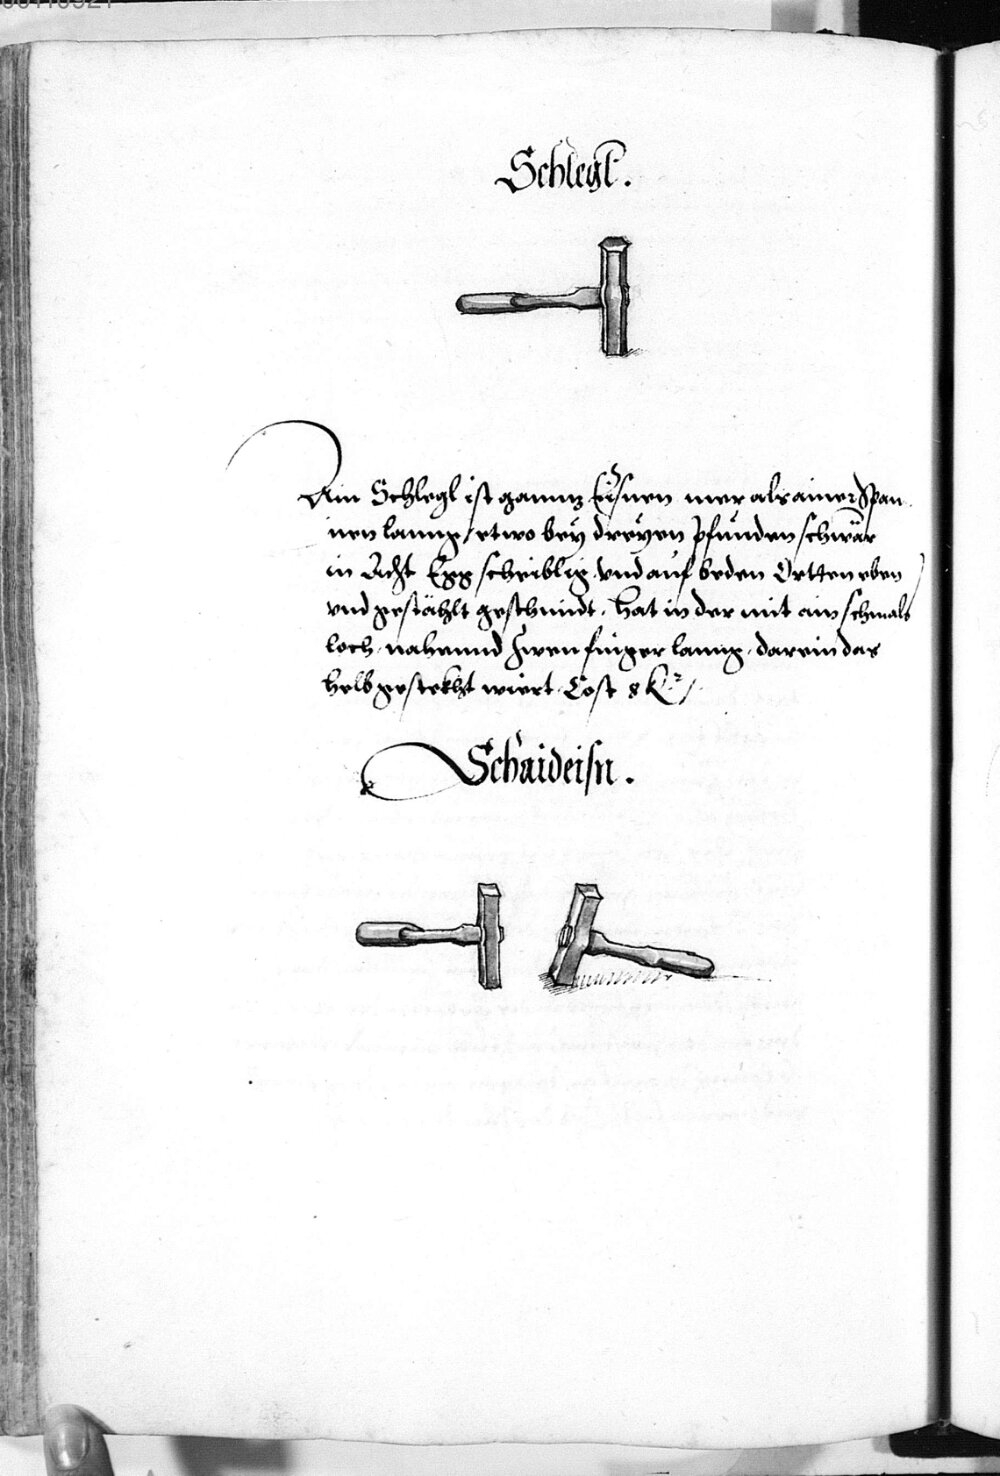 Schlegl.
Ain Schlegl ist gannz Eÿsnen mer als ainer Span
nen lanng, etwo beÿ dreÿen Pfunden schwär
in Acht Egg scheiblig vnd auf beden Ortten eben
vnd gestählt geschmidt. hat in der mit ain schmals
loch. nahennd zwen finger lanng. darein das
helb gestekht wiert. Cost 8 Kr
Schaideisn.